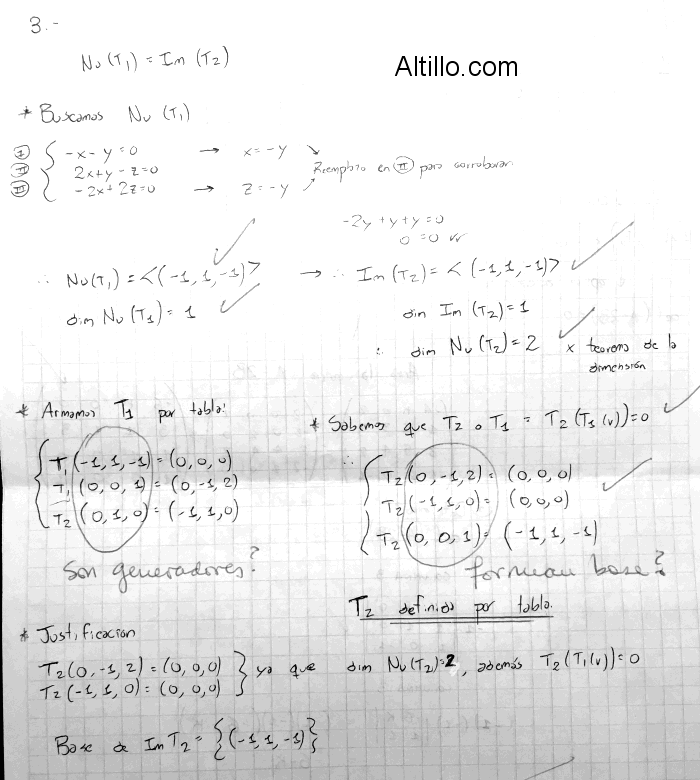 3.-
Nu(T₁) = Im(T₂)
Altillo.com
* Buscamos Nu(T₁)
Ⓘ { -x - y = 0 → x = -y
Ⓘ Ⓘ 2x + y - z = 0
Ⓘ Ⓘ Ⓘ -2x + 2z = 0 → z = -y
Reemplazo en Ⓘ Ⓘ para corroborar.
-2y + y + y = 0
0 = 0
∴ Nu(T₁) = <(-1, 1, -1)> → ∴ Im(T₂) = <(-1, 1, -1)>
dim Nu(T₁) = 1
dim Im(T₂) = 1
∴ dim Nu(T₂) = 2 x teorema de la dimensión
* Armamos T₁ por tabla:
T₁(-1, 1, -1) = (0, 0, 0)
T₁(0, 0, 1) = (0, -1, 2)
T₂(0, 1, 0) = (-1, 1, 0)
Son generadores?
* Sabemos que T₂ ∘ T₁ = T₂(T₁(v)) = 0
∴ T₂(0, -1, 2) = (0, 0, 0)
T₂(-1, 1, 0) = (0, 0, 0)
T₂(0, 0, 1) = (-1, 1, -1)
forman base?
T₂ definida por tabla.
* Justificación
T₂(0, -1, 2) = (0, 0, 0)
T₂(-1, 1, 0) = (0, 0, 0) } ya que dim Nu(T₂) = 2, además T₂(T₁(v)) = 0
Base de Im T₂ = {(-1, 1, -1)}